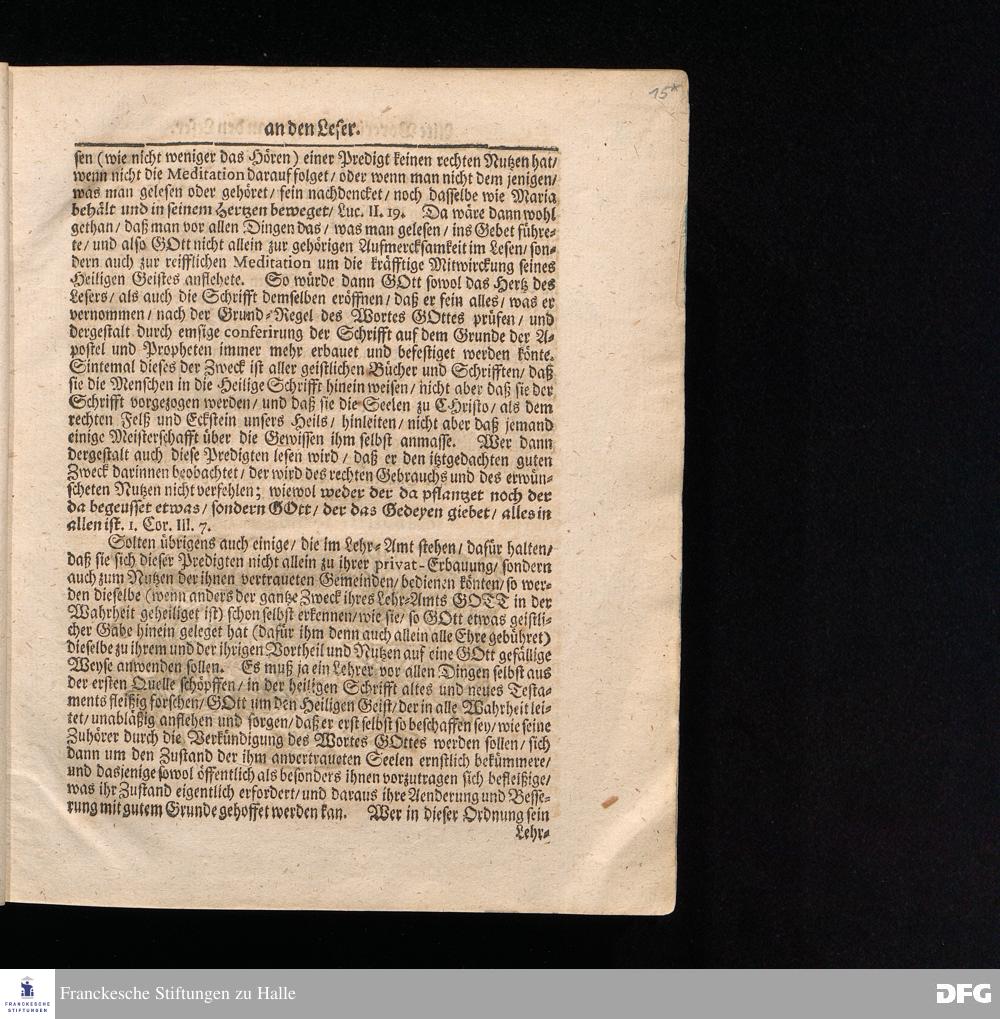 15*
an den Leser.
sen (wie nicht weniger das Hören) einer Predigt keinen rechten Nutzen hat/
wenn nicht die Meditation darauf folget/ oder wenn man nicht dem jenigen/
was man gelesen oder gehöret/ fein nachdencket/ noch dasselbe wie Maria
behält und in seinem Hertzen beweget/ Luc. II. 19. Da wäre dann wohl
gethan/ daß man vor allen Dingen das/ was man gelesen/ ins Gebet führe-
te/ und also GOtt nicht allein zur gehörigen Aufmercksamkeit im Lesen/ son-
dern auch zur reifflichen Meditation um die kräfftige Mitwirckung seines
Heiligen Geistes anflehete. So würde dann GOtt sowol das Hertz des
Lesers/ als auch die Schrifft demselben eröffnen/ daß er fein alles/ was er
vernommen/ nach der Grund-Regel des Wortes GOttes prüfen/ und
dergestalt durch emsige conferirung der Schrifft auf dem Grunde der A-
postel und Propheten immer mehr erbauet und befestiget werden könte.
Sintemal dieses der Zweck ist aller geistlichen Bücher und Schrifften/ daß
sie die Menschen in die Heilige Schrifft hinein weisen/ nicht aber daß sie der
Schrifft vorgezogen werden/ und daß sie die Seelen zu CHristo/ als dem
rechten Felß und Eckstein unsers Heils/ hinleiten/ nicht aber daß jemand
einige Meisterschafft über die Gewissen ihm selbst anmasse. Wer dann
dergestalt auch diese Predigten lesen wird/ daß er den itztgedachten guten
Zweck darinnen beobachtet/ der wird des rechten Gebrauchs und des erwün-
scheten Nutzen nicht verfehlen; wiewol weder der da pflantzet noch der
da begeusset etwas/ sondern GOtt/ der das Gedeyen giebet/ alles in
allen ist. 1. Cor. III. 7.
Solten übrigens auch einige/ die im Lehr-Amt stehen/ dafür halten/
daß sie sich dieser Predigten nicht allein zu ihrer privat-Erbauung/ sondern
auch zum Nutzen der ihnen vertraueten Gemeinden/ bedienen könten/ so wer-
den dieselbe (wenn anders der gantze Zweck ihres Lehr-Amts GOTT in der
Wahrheit geheiliget ist) schon selbst erkennen/ wie sie/ so GOtt etwas geistli-
cher Gabe hinein geleget hat (dafür ihm denn auch allein alle Ehre gebühret)
dieselbe zu ihrem und der ihrigen Vortheil und Nutzen auf eine GOtt gefällige
Weyse anwenden sollen. Es muß ja ein Lehrer vor allen Dingen selbst aus
der ersten Quelle schöpffen/ in der heiligen Schrifft altes und neues Testa-
ments fleißig forschen/ GOtt um den Heiligen Geist/ der in alle Wahrheit lei-
tet/ unabläßig anflehen und sorgen/ daß er erst selbst so beschaffen sey/ wie seine
Zuhörer durch die Verkündigung des Wortes GOttes werden sollen/ sich
dann um den Zustand der ihm anvertraueten Seelen ernstlich bekümmere/
und dasjenige sowol öffentlich als besonders ihnen vorzutragen sich befleißige/
was ihr Zustand eigentlich erfordert/ und daraus ihre Aenderung und Besse-
rung mit gutem Grunde gehoffet werden kan. Wer in dieser Ordnung sein
Lehr-
FRANCKESCHE
STIFTUNGEN
Franckesche Stiftungen zu Halle
DFG